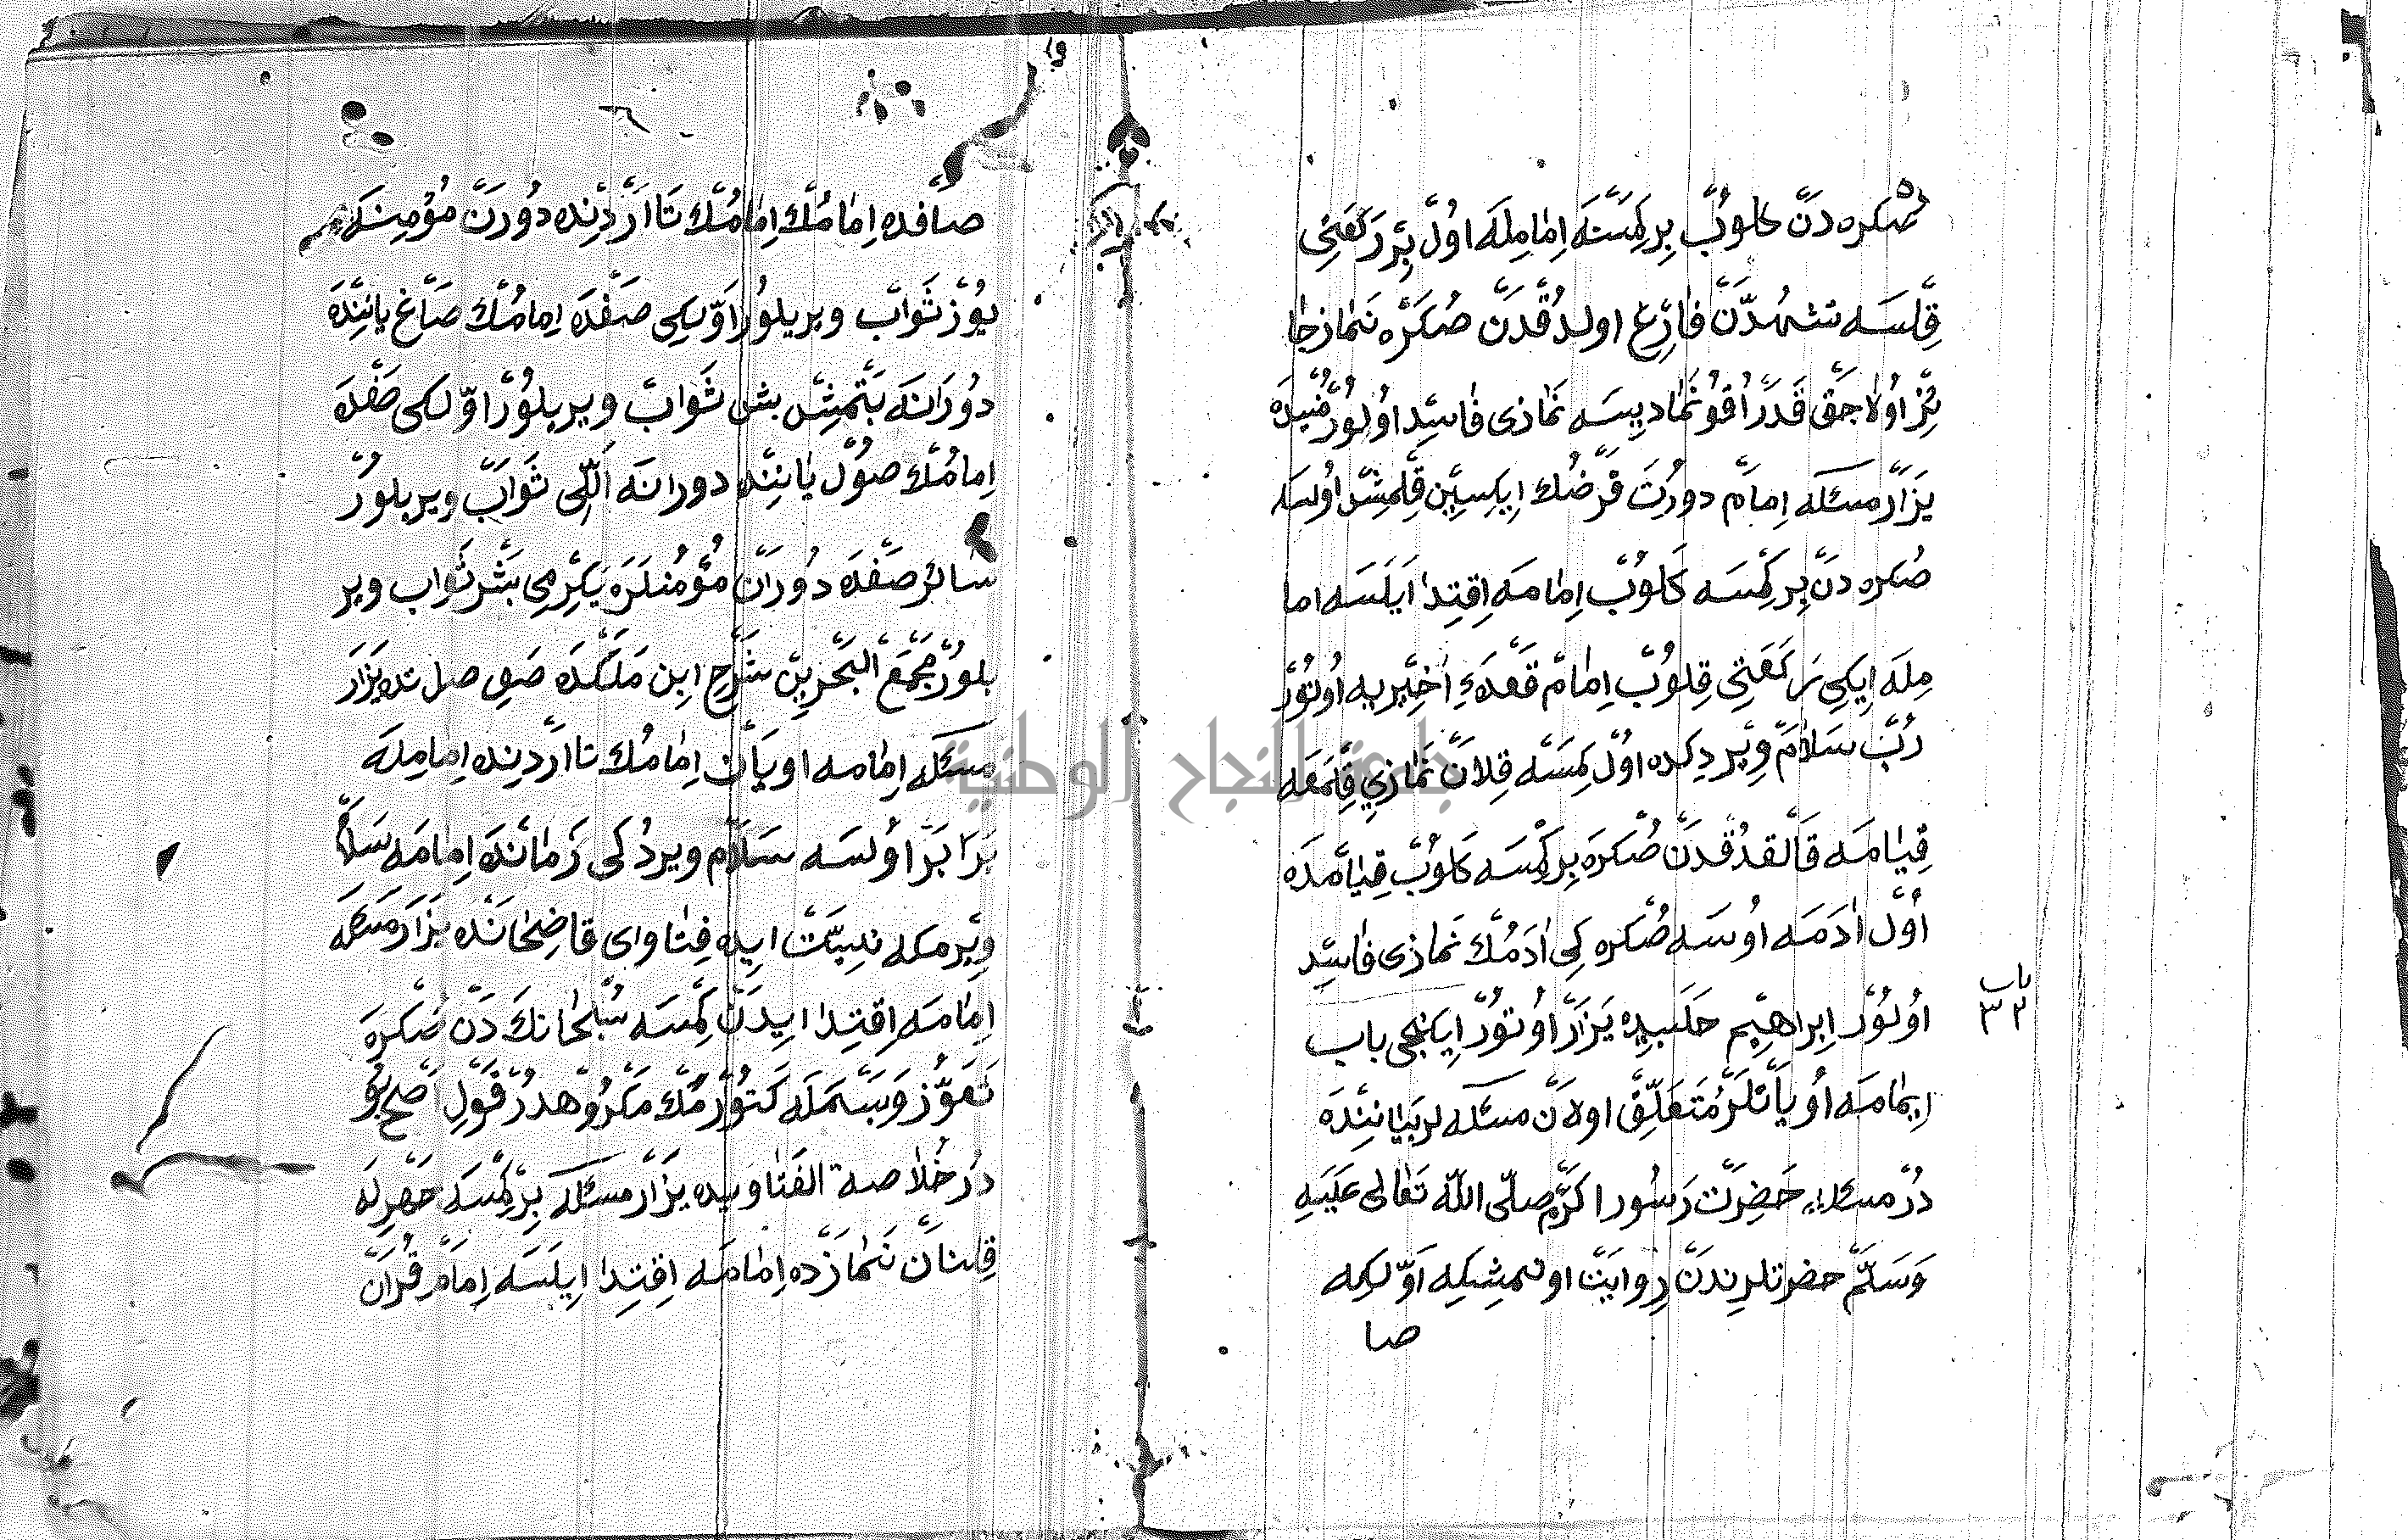 صُكره دَنْ كلوُبْ بِر كِمَسْنَه اِمٰامِلَه اوُلْ بِرْ رَكعَتِى
قِلْسَه تشهُدْدَنْ فٰارِغْ اولدُقْدَنْ صُكَرَه نَمٰازجٰا
ئِزْ اوُلاجَقْ قَدَرْ اُقوُنْمٰادِيسَه نَمٰازى فٰاسِدْ اوُلوُرْ مُنْيَدَه
يَزَارْ مسئله اِمٰامْ دوُرْتْ فَرْضُكْ اِيكِسِينْ قِلْمِشْ اوُلسَه
صُكره دَنْ بِر كِمْسَه كَلوُبْ اِمٰامَه اِقتِدٰا اَيلَسَه اما
مِلَه اِيكِى رَكعَتِى قِلوُبْ اِمٰامْ قَعْدَهءِ اَخِيْرَيه اُوتوُرْ
رُبْ سَلاٰمْ وِيْردِكده اوُلْ كِمْسَه قِلاَنْ نَمٰازِي قِلْمَغَه
قِيٰامَه قَالْقدُقْدَنْ صُكرَه بِر كِمْسَه كَلوُبْ قِيٰامَدَه
اوُلْ اٰدَمَه اوُسَه صُكره كِى اٰدَمُكْ نَمازى فٰاسِدْ
اوُلوُرْ اِبراهِيْم حَلَبِيده يَزَارْ اوُتوُزْ اِيكنجى باب
باب
٣٢
اِيمٰامَه اوُيَانْلَرَه مُتَعَلِّقْ اولاَنْ مسئله لر بَيٰانِنْدَه
دُرْ مسئله حَضرَتْ رَسُور اكرَمْ صلّى اللّه تَعٰالى عَلَيَهِ
وَسَلَّمْ حضرتلرِندَنْ رِوايَتْ اولمشِكِه اَوّلكِه
صا
صَافده اِمٰامُكْ اِمٰامُكْ تَا اَرْدِنده دوُرَنْ مؤمِنَكه
يوُزْ ثَوَابْ ويريلوُرْ اَوّلكِى صَفْدَه اِمامُكْ صَاغ يانِنْدَه
دوُرَانَه يَتْمِشْ بش ثَوَابْ ويريلوُرْ اَوّلكى صَفْدَه
اِمامُكْ صوُلْ يٰانِنْده دورانَه اَللِّى ثَوَابْ ويريلوُرْ
سائر صَفْدَه دوُرَانْ مؤمُنلَرَه يَكِرْمِى بَشْر ثَواب وير
يلوُرْ مَجْمَعْ البَحْرين شَرْحِ ابن مَلَكْدَه صَفِ صل نده يَزَارْ
مسئله اِمٰامه اويَانْ اِمٰامُكْ تا اَرْدِنده اِمامِلَه
بَرَابَرْ اوُلسَه سَلاَمْ ويردُكى زَمٰانْدَه اِمٰامَه سَلاَمْ
وِيْرمكه نِيّتْ ايده فتٰاواى قاضِخَانْدَه يَزَارْ مسئله
اِمٰامَه اِقتِدٰا ايدَنْ كِمْسَه سُبْحٰانكَ دَنْ صُكرَه
تَعَوُّذ وَبَسْمَلَه كَتوُرْمَك مَكْروُهدُرْ قَوْلِ اَصَح بُو
دُرْ خُلاٰصة الفَتٰاويده يَزَارْ مسئله بِر كِمْسَه جَهْرِلَه
قِلنَانْ نَمَازْده اِمٰامَه اقتِدٰا ايلَسَه اِمَامْ قُرْانْ